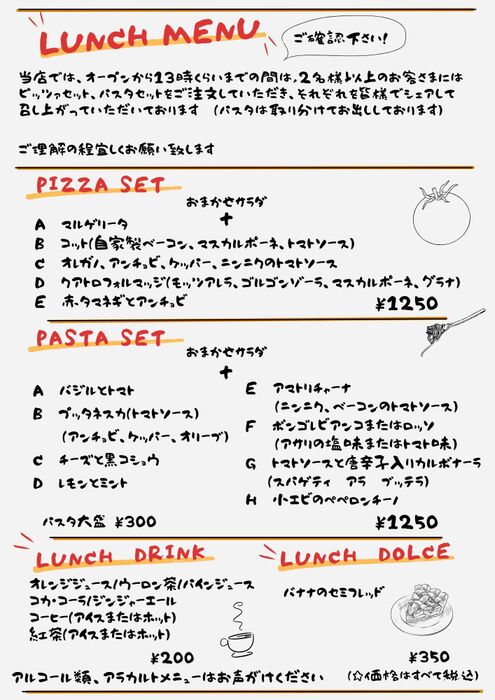 LUNCH MENU
ご確認下さい!
当店では、オープンから13時くらいまでの間は、2名様以上のお客さまには
ピッツァセット、パスタセットをご注文していただき、それぞれを皆様でシェアして
召し上がっていただいております (パスタは取り分けてお出ししております)
ご理解の程宜しくお願い致します
PIZZA SET
おまかせサラダ
+
A マルゲリータ
B コット(自家製ベーコン、マスカルポーネ、トマトソース)
C オレガノ、アンチョビ、ケッパー、ニンニクのトマトソース
D クアトロフォルマッジ(モッツアレラ、ゴルゴンゾーラ、マスカルポーネ、グラナ)
E 赤タマネギとアンチョビ
¥1250
PASTA SET
おまかせサラダ
+
A バジルとトマト
B プッタネスカ(トマトソース)
(アンチョビ、ケッパー、オリーブ)
C チーズと黒コショウ
D レモンとミント
パスタ大盛 ¥300
E アマトリチャーナ
(ニンニク、ベーコンのトマトソース)
F ボンゴレビアンコまたはロッソ
(アサリの塩味またはトマト味)
G トマトソースと唐辛子入りカルボナーラ
(スパゲティ アラ ブッテラ)
H 小エビのペペロンチーノ
¥1250
LUNCH DRINK
オレンジジュース/ウーロン茶/パインジュース
コカ・コーラ/ジンジャーエール
コーヒー(アイスまたはホット)
紅茶(アイスまたはホット)
¥200
LUNCH DOLCE
バナナのセミフレッド
¥350
アルコール類、アラカルトメニューはお声がけください (☆価格はすべて税込)